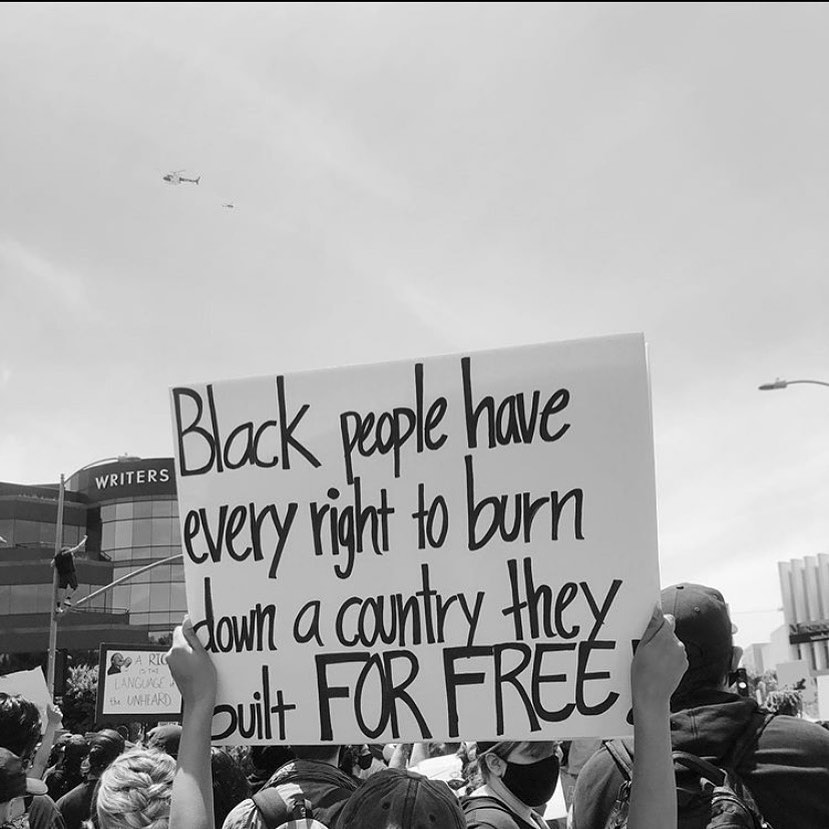 WRITERS
Black people have
every right to burn
down a country they
built FOR FREE!
A RIO
IS THE
LANGUAGE
the UNHEARD